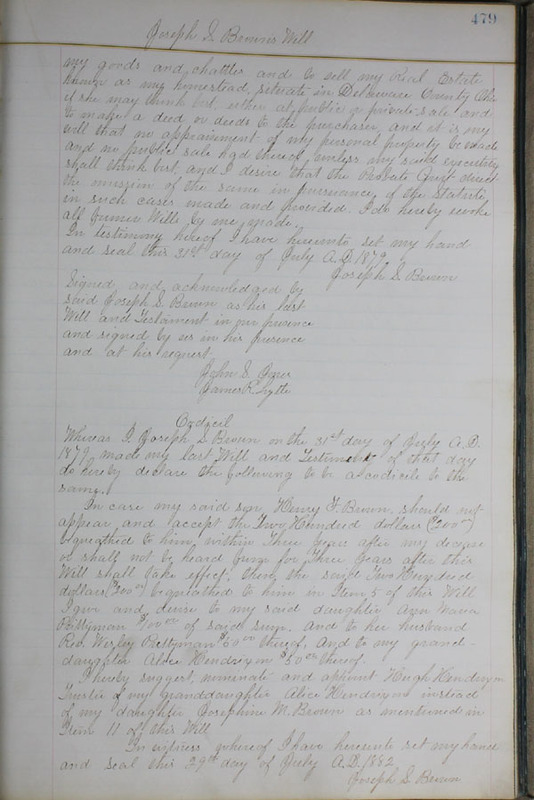 479
Joseph S. Brown's Will
my goods and chattles and to sell my Real Estate
known as my homestead, situate in Delaware County Ohio
if she may think best either at public or private sale and
to make a deed or deeds to the purchaser, and it is my
will that no appraisment of my personal property be made
and no public sale had thereof, unless my said executrix
shall think best, and I desire that the Probate Court direct
the omission of the same in pursuance, of the Statute,
in such cases made and provided. I do hereby revoke
all former Wills by me made.
In testimony hereof I have hereunto set my hand
and seal this 31st day of July A.D. 1879.
Joseph S. Brown
Signed and acknowledged by
said Joseph S. Brown as his last
Will and Testament in our presence
and signed by us in his presence
and at his request.
John S.
James R. Lytle
Codicil
Whereas I Joseph S. Brown on the 31st day of July A.D.
1879, made my last Will and Testiment of that day
do hereby declare the following to be a codicile to the
same.
In case my said son, Henry F. Brown, should not
appear, and accept the Two Hundred dollars ($200 00)
bequeathed to him, within Three Years after my decease
or shall not be heard from for Three Years after this
Will shall take effect. Then, the said Two Hundred
dollars ($200 00) bequeathed to him in Item 5 of this Will
I give and devise to my said daughter Maria
Prettyman $100 00 of said sum. And to her husband
Rev. Wesley Prettyman $50 00 thereof, And to my grand-
daughter Alice Hendrixon $50 00 thereof.
I hereby suggest, nominate and appoint Hugh Hendrixon
Trustee of my granddaughter Alice Hendrixon instead
of my daughter Josephine M. Brown as mentioned in
Item 11 of this Will
In witness whereof I have hereunto set my hand
and seal this 29th day of July A.D. 1882.
Joseph S. Brown